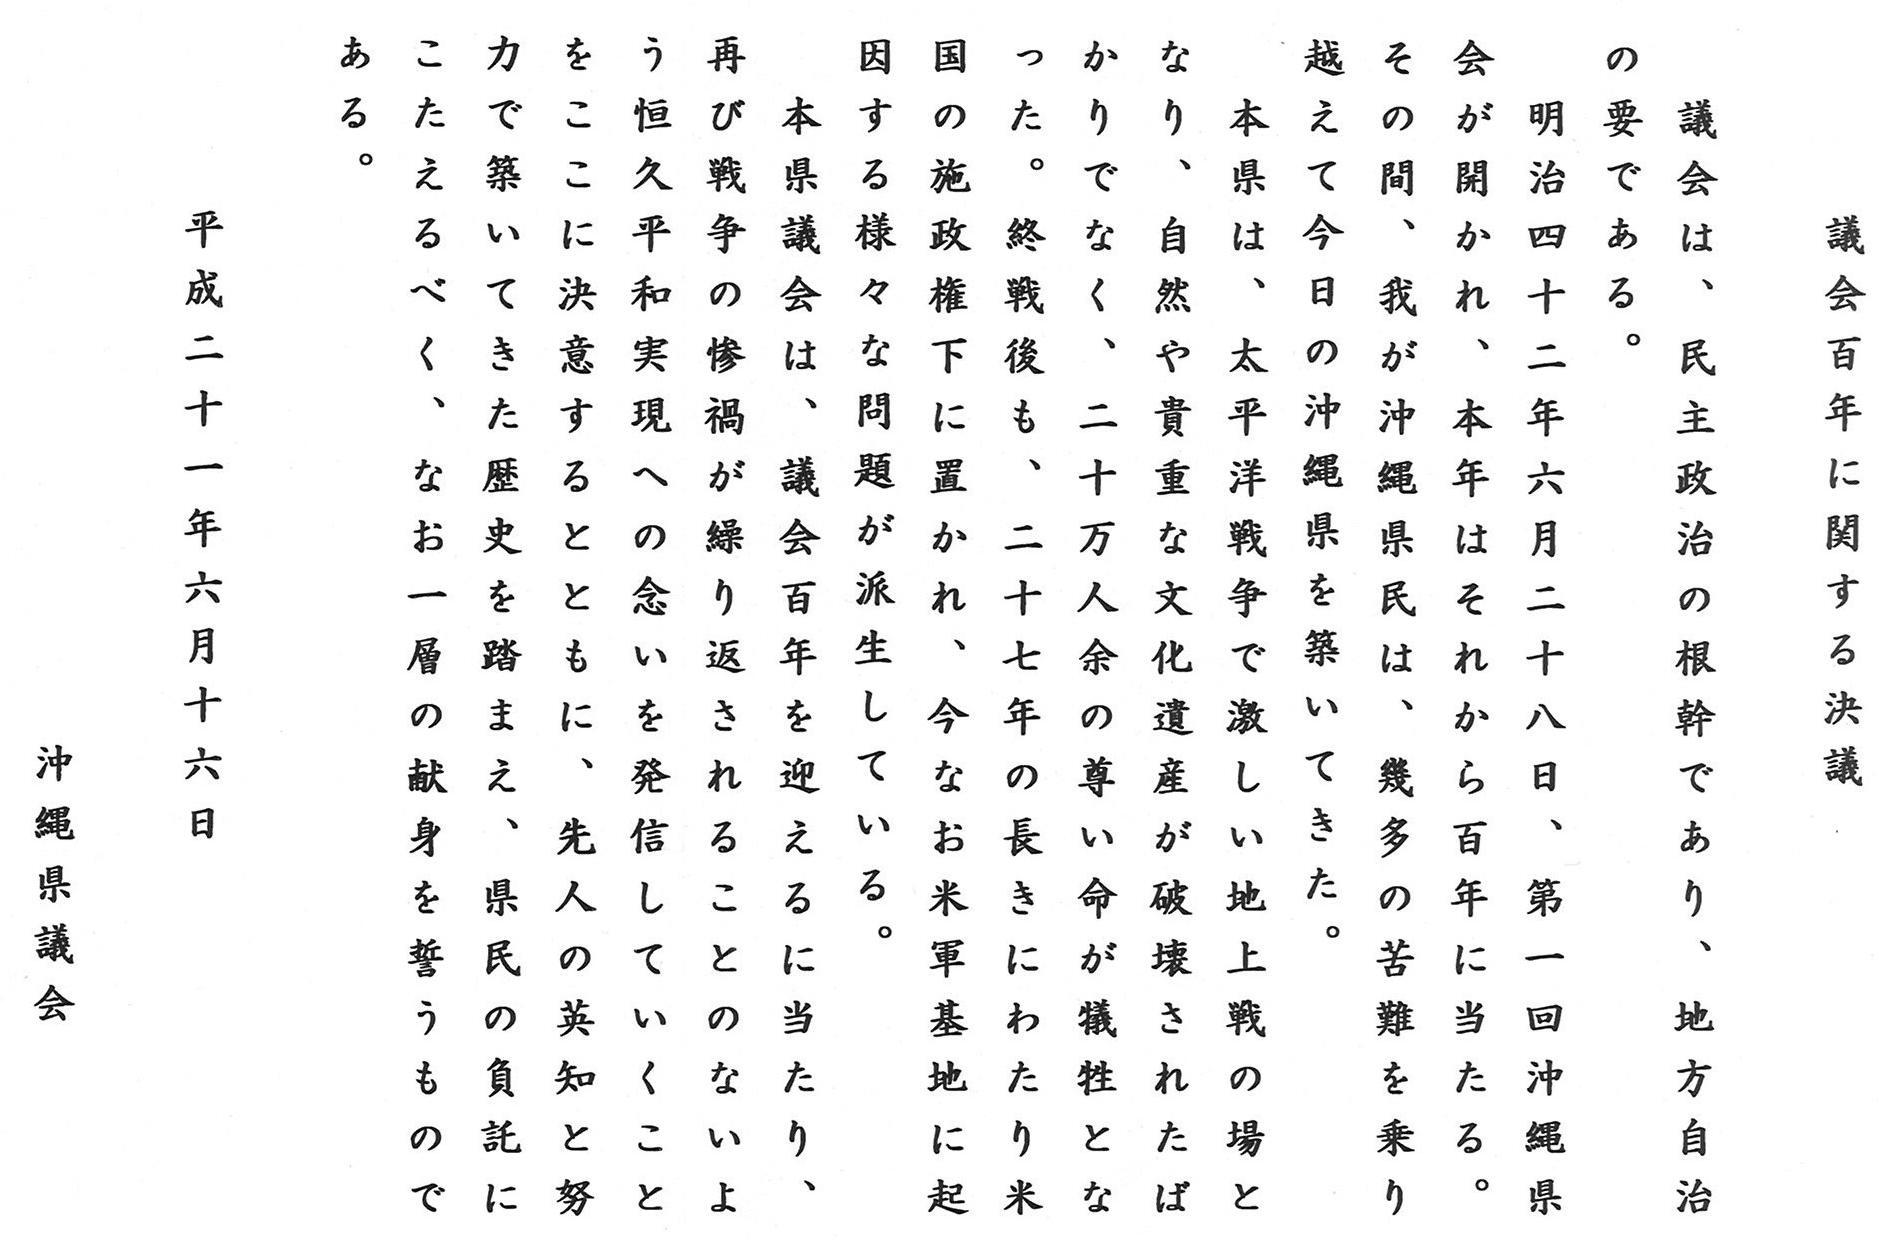 議会百年に関する決議
議会は、民主政治の根幹であり、地方自治
の要である。
明治四十二年六月二十八日、第一回沖縄県
会が開かれ、本年はそれから百年に当たる。
その間、我が沖縄県民は、幾多の苦難を乗り
越えて今日の沖縄県を築いてきた。
本県は、太平洋戦争で激しい地上戦の場と
なり、自然や貴重な文化遺産が破壊されたば
かりでなく、二十万人余の尊い命が犠牲とな
った。終戦後も、二十七年の長きにわたり米
国の施政権下に置かれ、今なお米軍基地に起
因する様々な問題が派生している。
本県議会は、議会百年を迎えるに当たり、
再び戦争の惨禍が繰り返されることのないよ
う恒久平和実現への念いを発信していくこと
をここに決意するとともに、先人の英知と努
力で築いてきた歴史を踏まえ、県民の負託に
こたえるべく、なお一層の献身を誓うもので
ある。
平成二十一年六月十六日
沖縄県議会